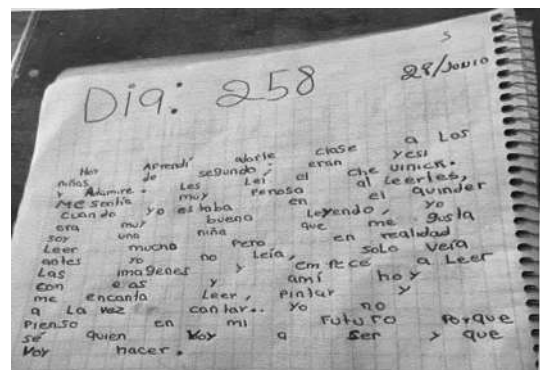 5
28/Junio
Dia: 258
Hoy Aprendí darle clase a Los
niños de segundo, eran yesi
y Admire. Les Leí el che uinick.
Me sentía muy Penosa al Leerles,
cuando yo estaba en el quinder
era muy buena Leyendo, yo
soy una niña que me gusta
Leer mucho pero en realidad
antes yo no Leía, solo veía
Las imagenes y empecé a Leer
con e as y amí hoy
me encanta Leer, Pintar y
a La vez cantar.. yo no
Pienso en mi Futuro Porque
sé quien Voy a ser y que
Voy hacer.